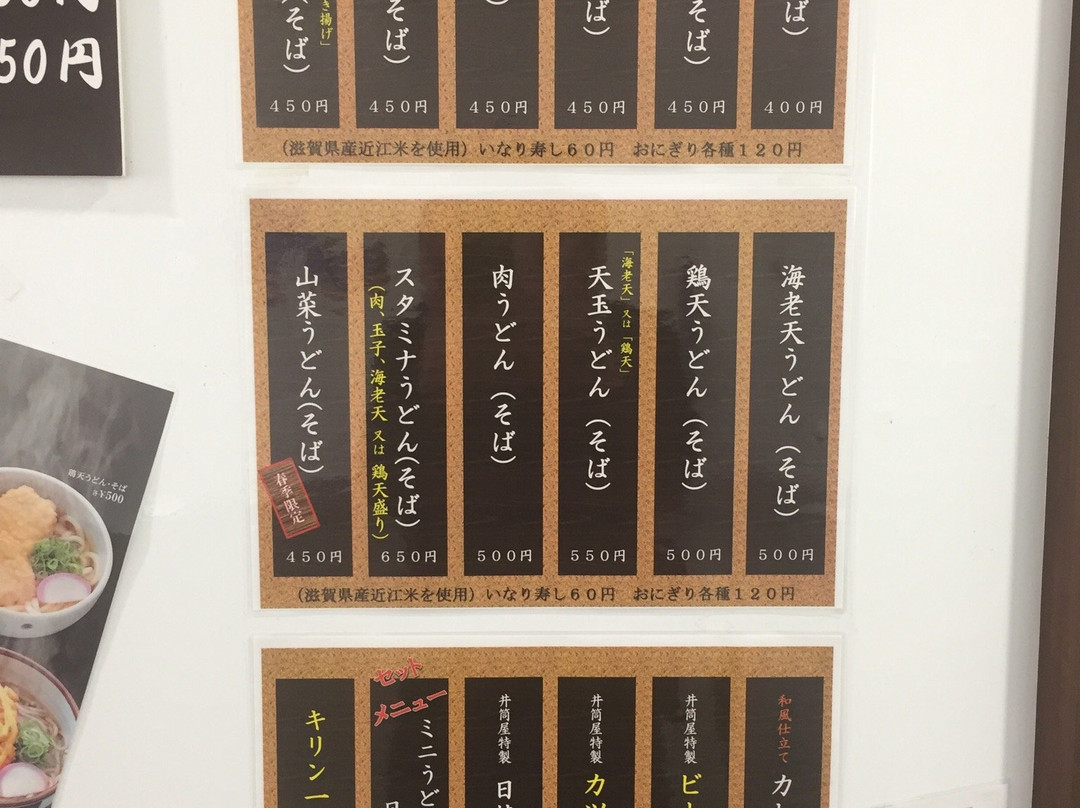 50円
そば）
き揚げ」
そば）
そば）
そば）
そば）
450円
450円
450円
450円
450円
400円
（滋賀県産近江米を使用）いなり寿し60円　おにぎり各種120円
海老天うどん（そば）
500円
鶏天うどん（そば）
500円
「海老天」又は「鶏天」
天玉うどん（そば）
550円
肉うどん（そば）
500円
スタミナうどん(そば)
(肉、玉子、海老天 又は 鶏天盛り)
650円
山菜うどん(そば)
春季限定
450円
（滋賀県産近江米を使用）いなり寿し60円　おにぎり各種120円
鶏天うどん・そば
各¥500
和風仕立て
カ
井筒屋特製
ビ
井筒屋特製
カツ
井筒屋特製
日
セット
メニュー
ミニうど
キリン一